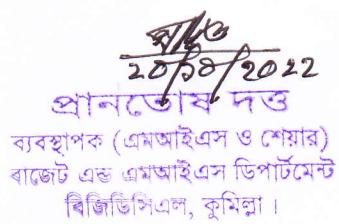 20/10/2022
প্রানতোষ দত্ত
ব্যবস্থাপক (এমআইএস ও শেয়ার)
বাজেট এন্ড এমআইএস ডিপার্টমেন্ট
বিজিডিসিএল, কুমিল্লা।